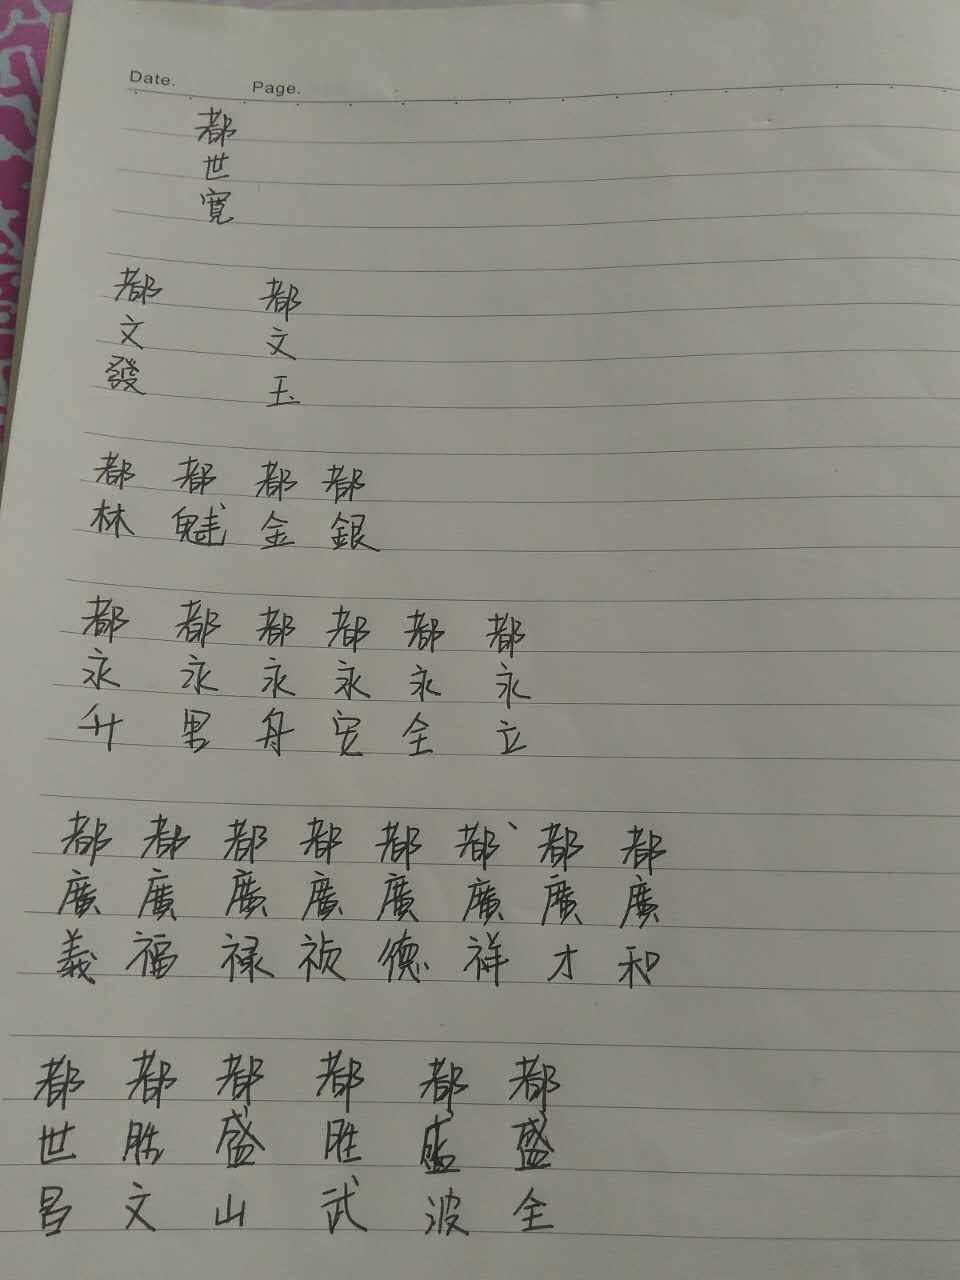 Date. Page.
都世寬
都文發
都文玉
都林
都魁
都金
都銀
都永升
都永
都永舟
都永
都永全
都永立
都廣義
都廣福
都廣禄
都廣祯
都廣德
都廣祥
都廣才
都廣和
都世昌
都胜文
都盛山
都胜武
都盛波
都盛全